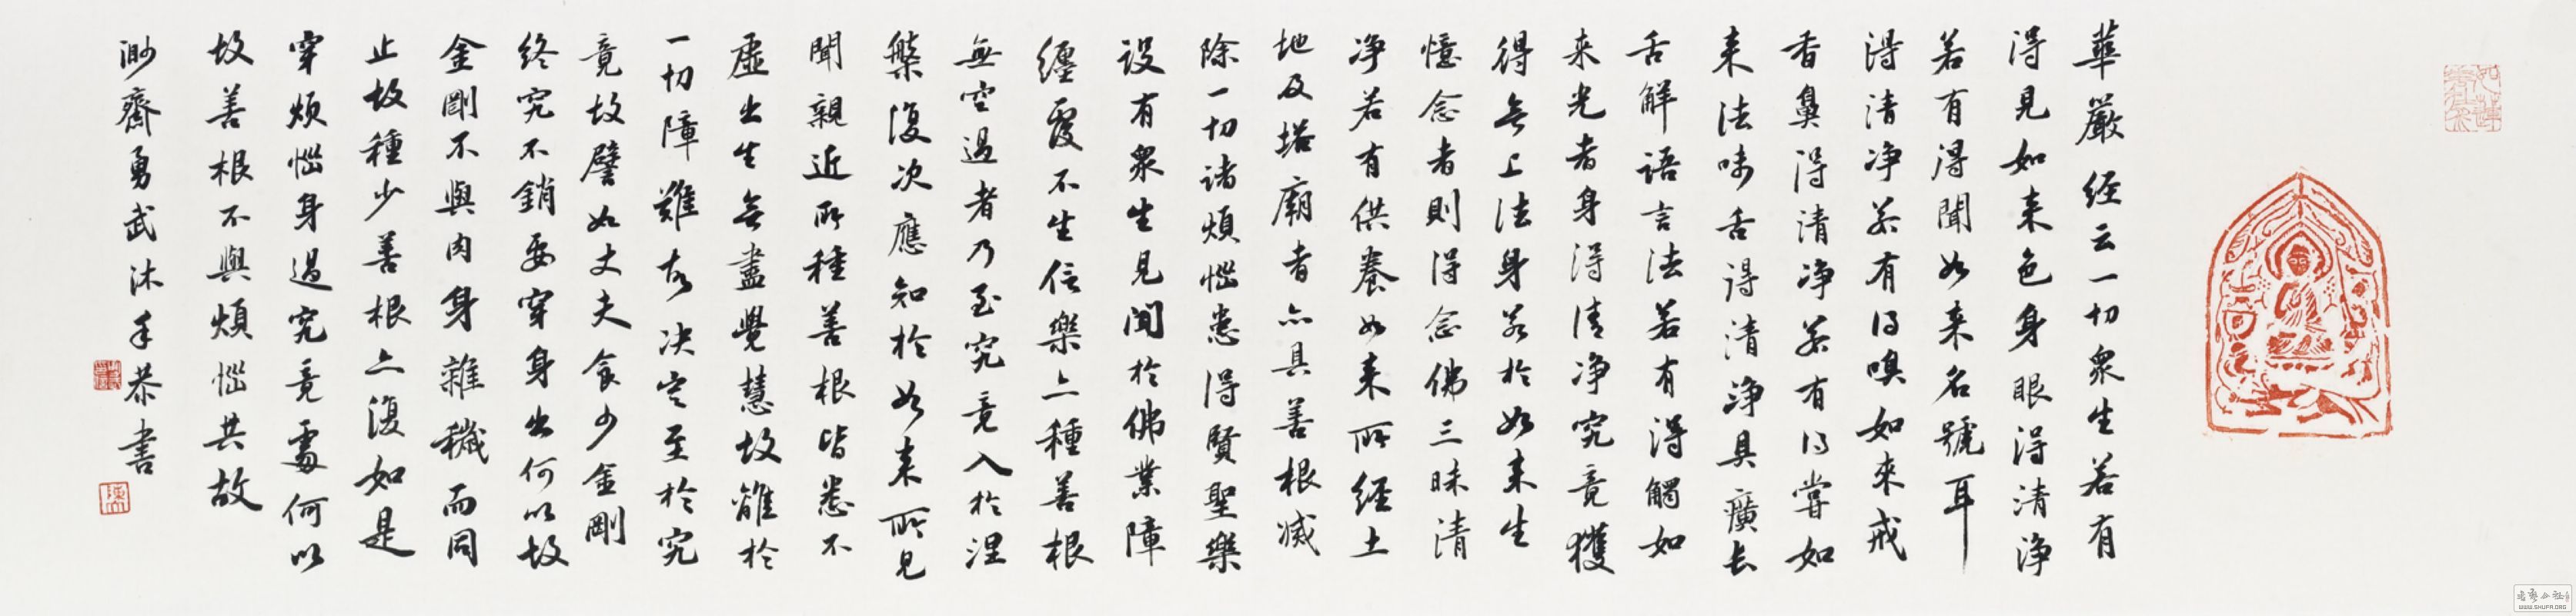 華嚴經云一切衆生若有
得見如来色身眼得清淨
若有得聞如来名號耳
得清净若有得嗅如來戒
香鼻得清净若有得嘗如
来法味舌得清淨具廣长
舌解語言法若有得觸如
来光者身得清净究竟獲
得無上法身若於如来生
憶念者則得念佛三昧清
净若有供養如来所經土
地及塔廟者亦具善根滅
除一切諸煩惱患得賢聖樂
设有衆生見聞於佛業障
纏覆不生信樂亦種善根
無空過者乃至究竟入於涅
槃復次應知於如来所見
聞親近所種善根皆悉不
虚出生無盡覺慧故離於
一切障難故决定至於究
竟故譬如丈夫食少金剛
终究不銷要穿身出何以故
金剛不與肉身雜穢而同
止故種少善根亦復如是
穿煩惱身過究竟處何以
故善根不與煩惱共故
渺齋勇武沐手恭書
WWW.SHUFA.ORG